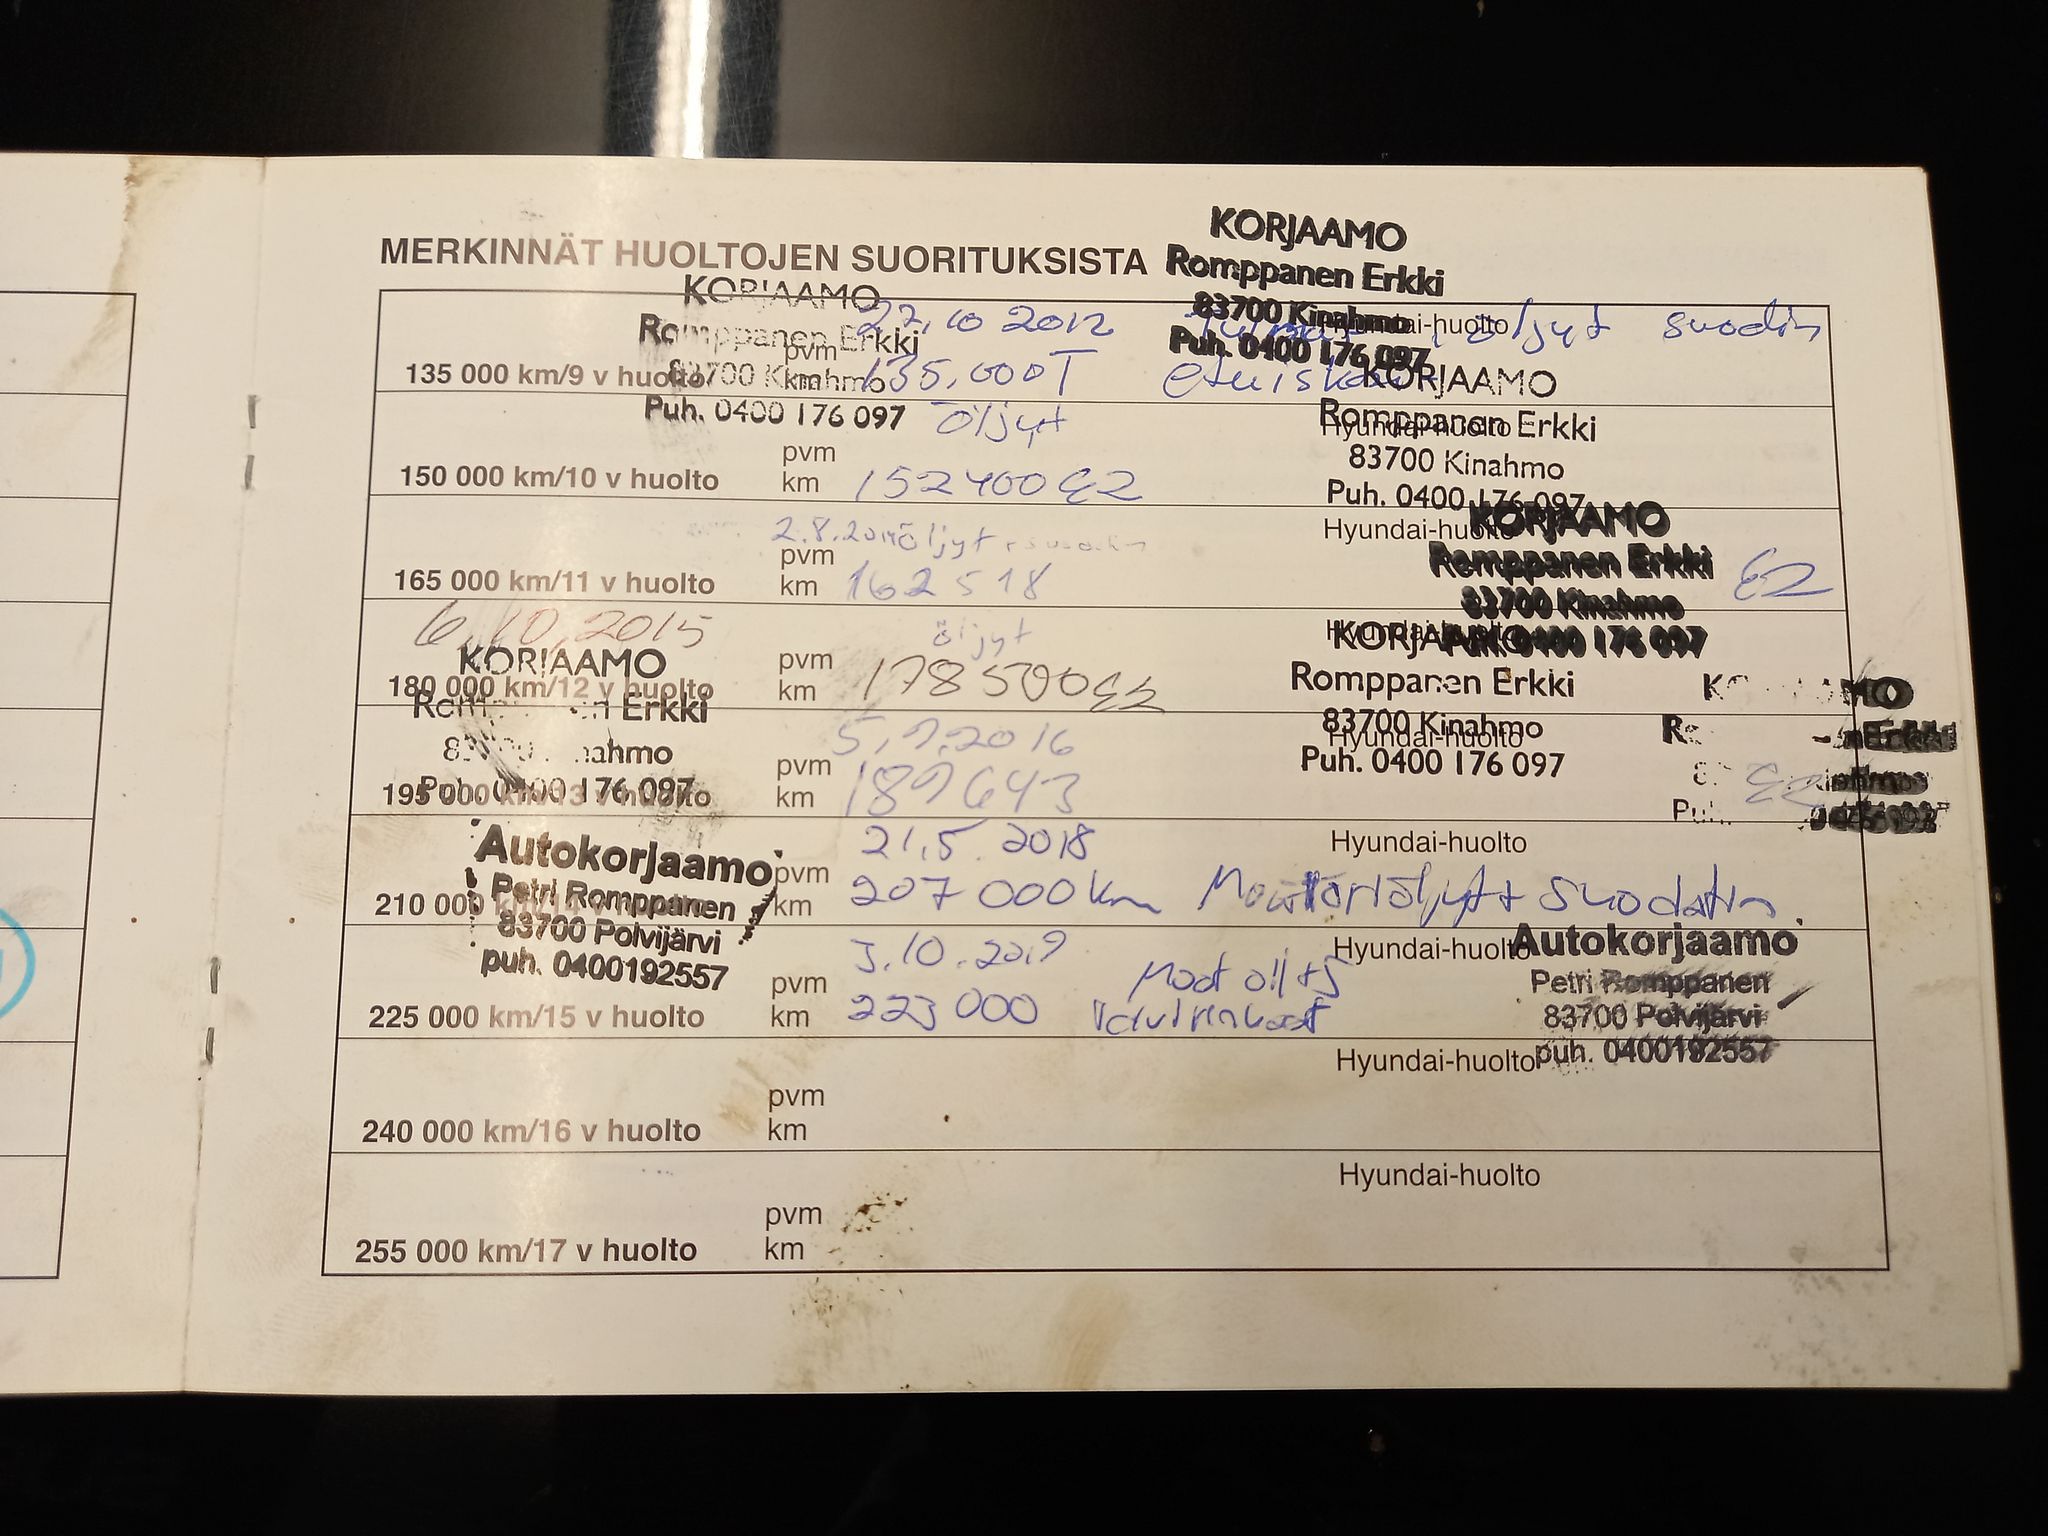 MERKINNÄT HUOLTOJEN SUORITUKSISTA
KORJAAMO
Romppanen Erkki
83700 Kinahmo
Puh. 0400 176 097
KORJAAMO
Romppanen Erkki
83700 Kinahmo
Puh. 0400 176 097
135 000 km/9 v huolto
pvm 27.10 2012
km 135.000 T
Hyundai-huolto
öljyt suodin
öljyt
KORJAAMO
Romppanen Erkki
83700 Kinahmo
Puh. 0400 176 097
150 000 km/10 v huolto
pvm
km 152400
Hyundai-huolto
2.8.2014 öljyt + suodin
KORJAAMO
Romppanen Erkki
83700 Kinahmo
Puh. 0400 176 097
165 000 km/11 v huolto
pvm
km 162518
Hyundai-huolto
6.10.2015
öljyt
KORJAAMO
Romppanen Erkki
83700 Kinahmo
Puh. 0400 176 097
180 000 km/12 v huolto
pvm
km 178500
Hyundai-huolto
KORJAAMO
Romppanen Erkki
83700 Kinahmo
Puh. 0400 176 097
5.9.2016
195 000 km/13 v huolto
pvm
km 189643
Hyundai-huolto
21.5.2018
Autokorjaamo
Petri Romppanen
83700 Polvijärvi
puh. 0400192557
210 000 km/14 v huolto
pvm
km 207 000 km Moottoriöljyt + Suodatin
Hyundai-huolto
3.10.2019
Moot öljyt
225 000 km/15 v huolto
pvm
km 223 000
Hyundai-huolto
Autokorjaamo
Petri Romppanen
83700 Polvijärvi
puh. 0400192557
240 000 km/16 v huolto
pvm
km
Hyundai-huolto
255 000 km/17 v huolto
pvm
km
Hyundai-huolto